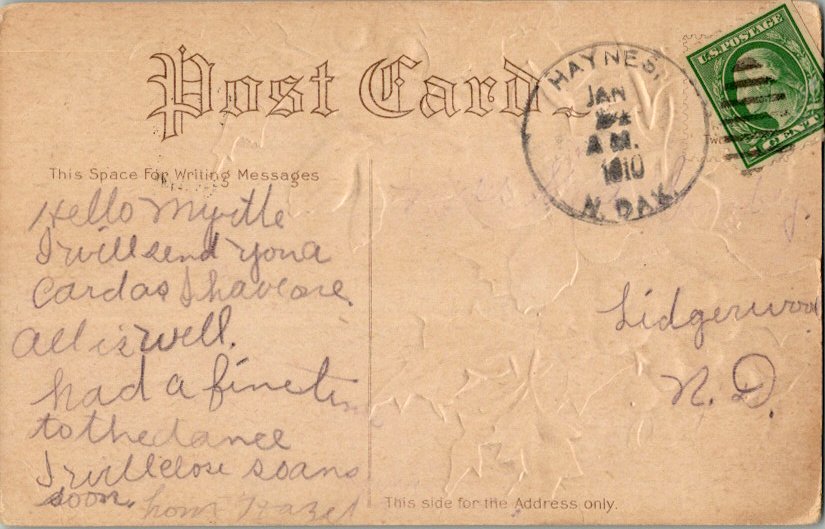 Post Card
HAYNES,
JAN
A M.
1910
N. DAK.
U.S. POSTAGE
1 CENT 1
This Space For Writing Messages
Hello Myrtle
I will send you a
card as I have one.
All is well.
had a fine time
to the dance
I will close so ans
soon. from Hazel
Lidgerwood
N. D.
This side for the Address only.